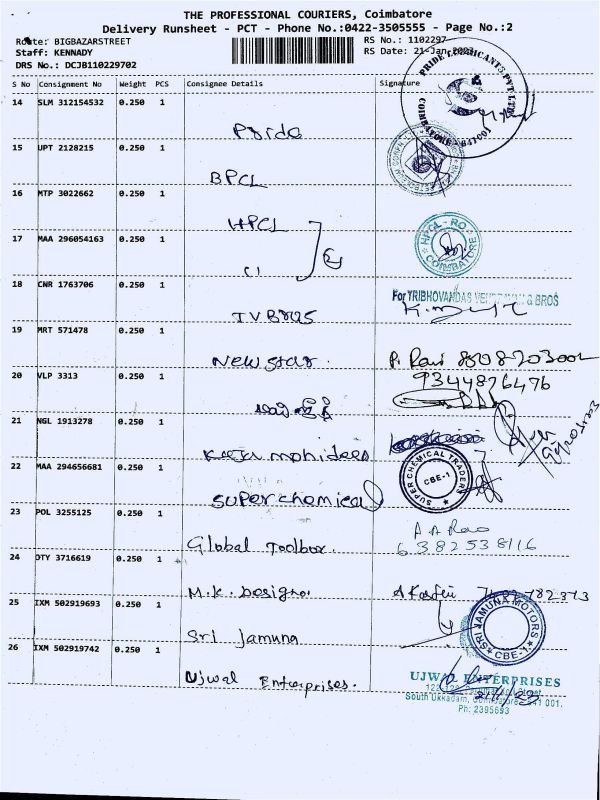 THE PROFESSIONAL COURIERS, Coimbatore
Delivery Runsheet - PCT - Phone No.:0422-3505555 - Page No.:2
Route: BIGBAZARSTREET
RS No.: 1102297
Staff: KENNADY
RS Date: 21-Jan-2023
DRS No.: DCJB110229702
S No Consignment No Weight PCS Consignee Details Signature
PRIDE LUBRICANTS PVT LTD
COIMBATORE - 641001
14 SLM 312154532 0.250 1
Pride
15 UPT 2128215 0.250 1
BPCL
16 MTP 3022662 0.250 1
HPCL
HPCL - RO
COIMBATORE
17 MAA 296054163 0.250 1
18 CNR 1763706 0.250 1
For TRIBHOVANDAS & BROS
TV Bros
19 MRT 571478 0.250 1
New star.
20 VLP 3313 0.250 1
9344876476
21 NGL 1913278 0.250 1
22 MAA 294656681 0.250 1
SUPER CHEMICAL TRADERS
CBE-1
Super chemical
23 POL 3255125 0.250 1
Global Toolbox.
6382538116
24 DTY 3716619 0.250 1
M.K. Designs
25 IXM 502919693 0.250 1
Sri Jamuna
SRI JAMUNA MOTORS
CBE-1
26 IXM 502919742 0.250 1
Ujwal Enterprises.
ENTERPRISES
South Ukkadam, Coimbatore - 641 001.
Ph: 2395693